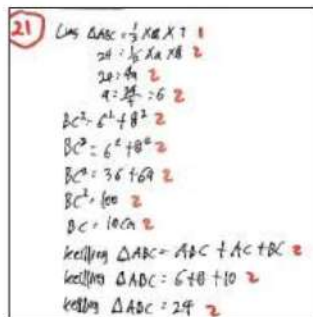 21 Luas ΔABC = 1/2 × a × t 1
24 = 1/2 × a × 8 2
24 = 4a 2
a = 24/4 = 6 2
BC² = 6² + 8² 2
BC² = 6² + 8² 2
BC² = 36 + 64 2
BC² = 100 2
BC = 10 cm 2
keliling ΔABC = ABC + AC + BC 2
keliling ΔABC = 6 + 8 + 10 2
keliling ΔABC = 24 2